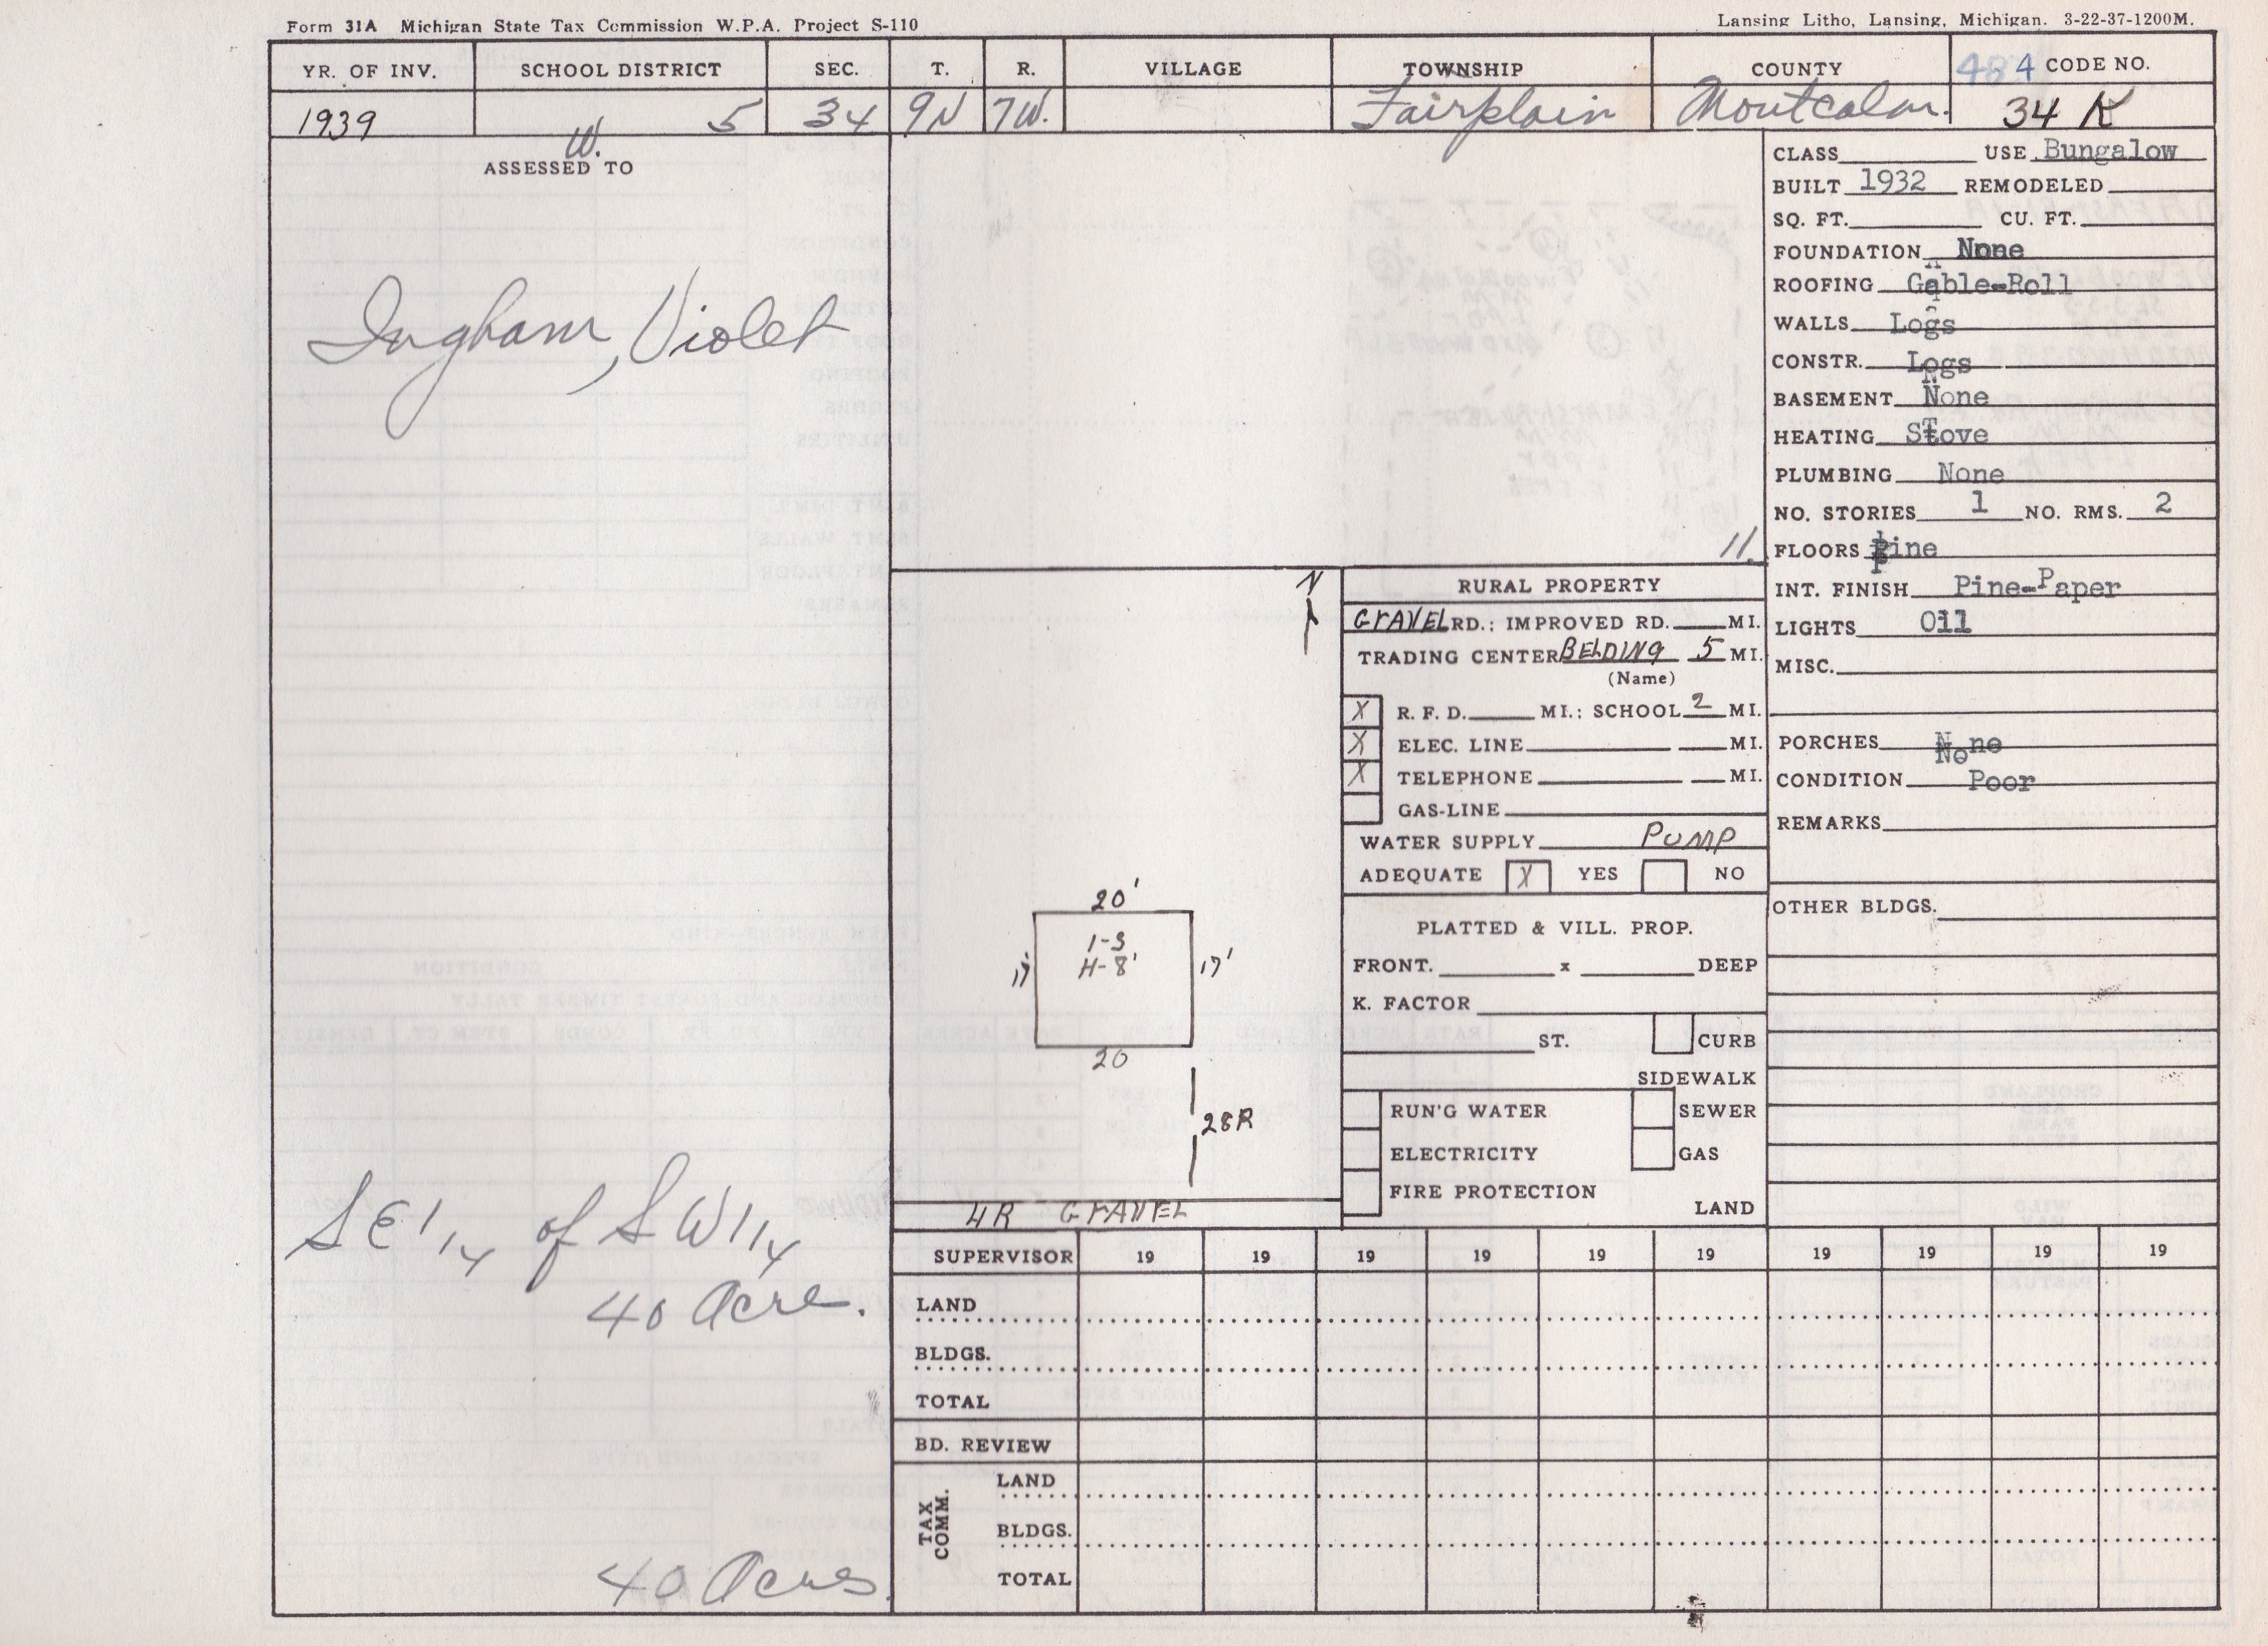 Form 31A Michigan State Tax Commission W.P.A. Project S-110
Lansing Litho, Lansing, Michigan. 3-22-37-1200M.
YR. OF INV. SCHOOL DISTRICT SEC. T. R. VILLAGE TOWNSHIP COUNTY 484 CODE NO.
1939 5 34 9N 7W. Fairplain Montcalm. 34 K
W.
ASSESSED TO
Ingham, Violet
SE 1/4 of SW 1/4
40 Acre.
40 Acres.
11.
N
20'
1-S
H-8'
17'
17'
20
28R
4R GRAVEL
CLASS USE Bungalow
BUILT 1932 REMODELED
SQ. FT. CU. FT.
FOUNDATION None
ROOFING Gable-Roll
WALLS Logs
CONSTR. Logs
BASEMENT None
HEATING Stove
PLUMBING None
NO. STORIES 1 NO. RMS. 2
FLOORS Pine
INT. FINISH Pine-Paper
LIGHTS Oil
MISC.
PORCHES None
CONDITION Poor
REMARKS
OTHER BLDGS.
RURAL PROPERTY
GRAVEL RD.; IMPROVED RD. MI.
TRADING CENTER BELDING 5 MI.
(Name)
X R. F. D. MI.; SCHOOL 2 MI.
X ELEC. LINE MI.
X TELEPHONE MI.
GAS-LINE
WATER SUPPLY PUMP
ADEQUATE X YES NO
PLATTED & VILL. PROP.
FRONT. x DEEP
K. FACTOR
ST. CURB
SIDEWALK
RUN'G WATER SEWER
ELECTRICITY GAS
FIRE PROTECTION
LAND
SUPERVISOR 19 19 19 19 19 19 19 19 19 19
LAND
BLDGS.
TOTAL
BD. REVIEW
TAX COMM.
LAND
BLDGS.
TOTAL